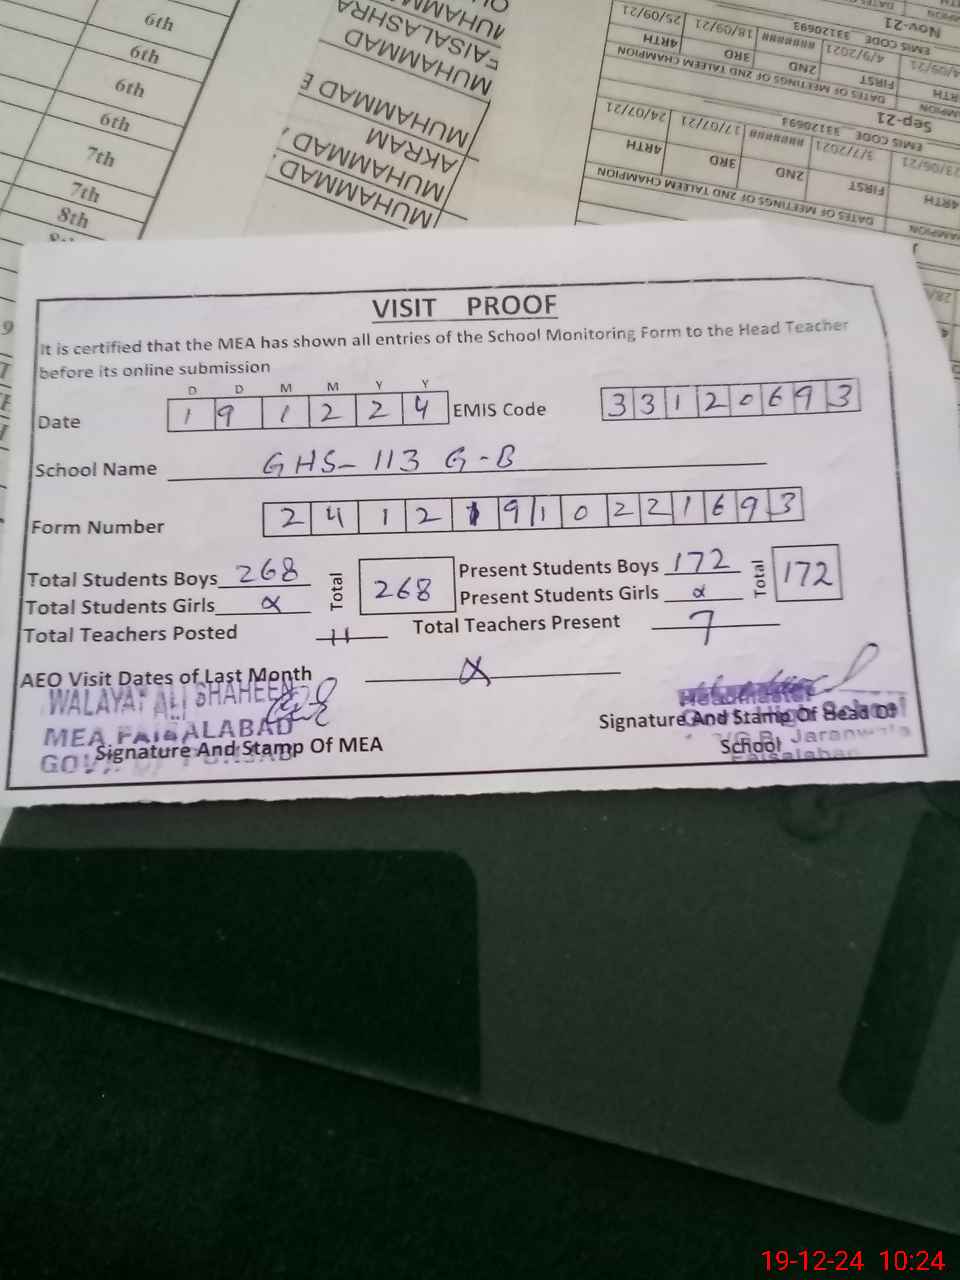 6th
6th
6th
6th
7th
7th
8th
MUHAMMAD
FAISALASHRA
MUHAMMAD
MUHAMMAD E
AKRAM
MUHAMMAD
MUHAMMAD
Nov-21
EMIS CODE 33120693
25/09/21 18/09/21 ####### 4/9/2021
4RTH 3RD 2ND FIRST
DATES OF MEETINGS OF 2ND TALEEM CHAMPION
Sep-21
EMIS CODE 33120693
24/07/21 17/07/21 ####### 3/7/2021
4RTH 3RD 2ND FIRST 4RTH
DATES OF MEETINGS OF 2ND TALEEM CHAMPION
VISIT PROOF
It is certified that the MEA has shown all entries of the School Monitoring Form to the Head Teacher
before its online submission
D D M M Y Y
Date 1 9 1 2 2 4 EMIS Code 3 3 1 2 0 6 9 3
School Name GHS- 113 G-B
Form Number 2 4 1 2 1 9 1 0 2 2 1 6 9 3
Total Students Boys 268 Total 268 Present Students Boys 172 Total 172
Total Students Girls Present Students Girls
Total Teachers Posted 11 Total Teachers Present 7
AEO Visit Dates of Last Month
WALAYAT ALI SHAHEEN
MEA FAISALABAD
GOVT OF PUNJAB
Signature And Stamp Of MEA
Headmaster
Signature And Stamp Of Head Of
School
G.B. Jaranwala
Faisalabad
19-12-24 10:24